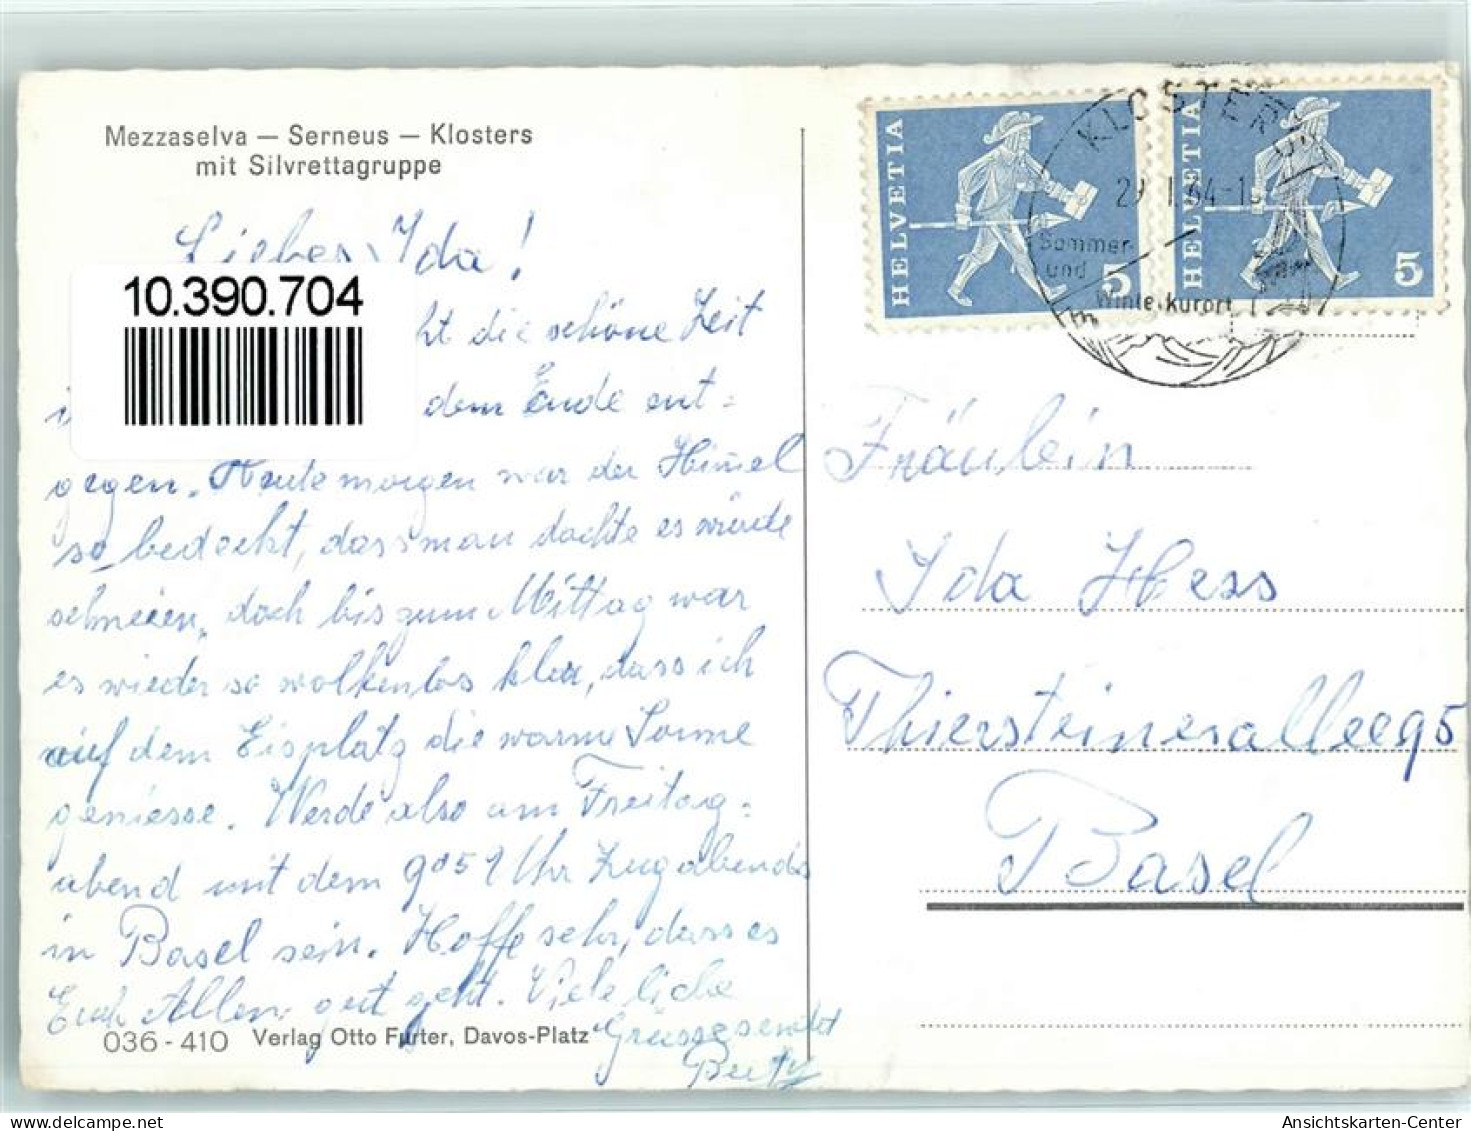 Mezzaselva — Serneus — Klosters
mit Silvrettagruppe
Liebes Ida!
10.390.704
die schöne Zeit
dem Ende ent=
gegen. Heute morgen war der Himmel
so bedeckt, dass man dachte es würde
schneien, doch bis zum Mittag war
es wieder so wolkenlos klar, dass ich
auf dem Eisplatz die warme Sonne
geniesse. Werde also am Freitag=
abend mit dem Uhr Zug abends
in Basel sein. Hoffe sehr, dass es
Euch Allen gut geht. Viele liebe
Grüsse sendet
036-410 Verlag Otto Furter, Davos-Platz
HELVETIA 5
HELVETIA 5
KLOSTERS
Sommer-
und
Winterkurort
Fräulein
Ida Hess
Thiersteinerallee 95
Basel
Ansichtskarten-Center